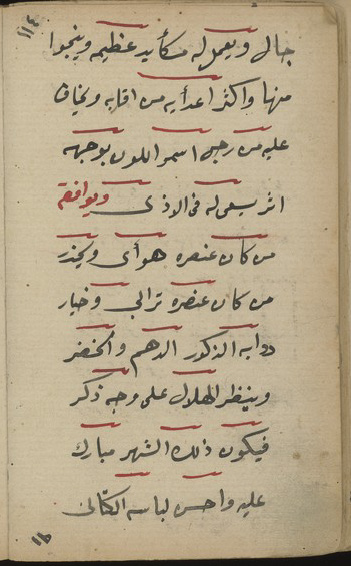 ١١٤
جال ويعمل له مكأيد عظيمه وينجوا
منها واكثر اعدأيه من اقابه ويخاف
عليه من رجل اسمر اللون بوجهه
اثر يسعى له فى الاذى ويوافقه
من كان عنصره هوأى ويحذر
من كان عنصره ترابى وخيار
دوابه الذكور الدهم والخضر
وينظر الهلال على وجه ذكر
فيكون ذلك الشهر مبارك
عليه واحسن لباسه الكتان